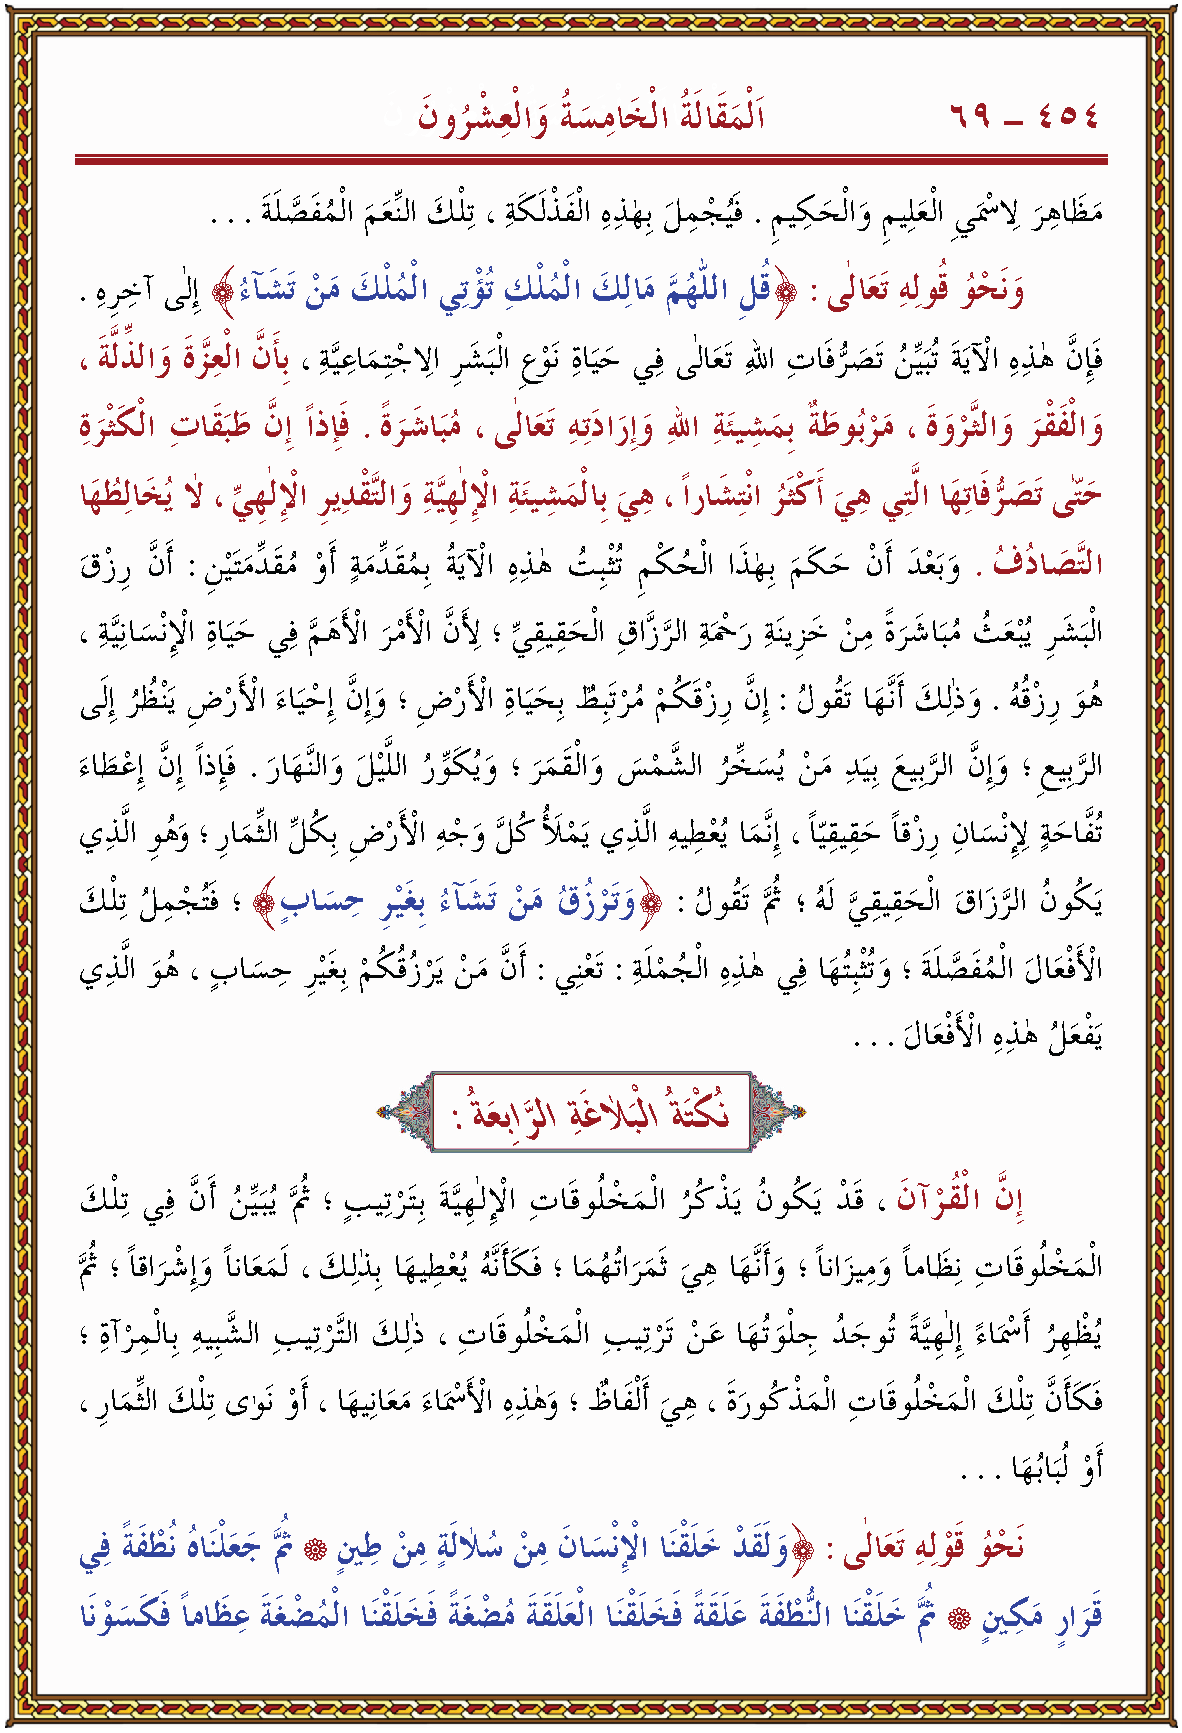 ٤٥٤ – ٦٩ اَلْمَقَالَةُ الْخَامِسَةُ وَالْعِشْرُونَ
مَظَاهِرَ لِاسْمَيِ الْعَلِيمِ وَالْحَكِيمِ . فَيُجْمِلَ بِهٰذِهِ الْفَذْلَكَةِ ، تِلْكَ النِّعَمَ الْمُفَصَّلَةَ . . .
وَنَحْوُ قُولِهِ تَعَالٰى : ﴿قُلِ اللّٰهُمَّ مَالِكَ الْمُلْكِ تُؤْتِي الْمُلْكَ مَنْ تَشَآءُ﴾ إِلٰى آخِرِهِ .
فَإِنَّ هٰذِهِ الْآيَةَ تُبَيِّنُ تَصَرُّفَاتِ اللهِ تَعَالٰى فِي حَيَاةِ نَوْعِ الْبَشَرِ الِاجْتِمَاعِيَّةِ ، بِأَنَّ الْعِزَّةَ وَالذِّلَّةَ ،
وَالْفَقْرَ وَالثَّرْوَةَ ، مَرْبُوطَةٌ بِمَشِيئَةِ اللهِ وَإِرَادَتِهِ تَعَالٰى ، مُبَاشَرَةً . فَإِذاً إِنَّ طَبَقَاتِ الْكَثْرَةِ
حَتّٰى تَصَرُّفَاتِهَا الَّتِي هِيَ أَكْثَرُ انْتِشَاراً ، هِيَ بِالْمَشِيئَةِ الْإِلٰهِيَّةِ وَالتَّقْدِيرِ الْإِلٰهِيِّ ، لَا يُخَالِطُهَا
التَّصَادُفُ . وَبَعْدَ أَنْ حَكَمَ بِهٰذَا الْحُكْمِ تُثْبِتُ هٰذِهِ الْآيَةُ بِمُقَدِّمَةٍ أَوْ مُقَدِّمَتَيْنِ : أَنَّ رِزْقَ
الْبَشَرِ يُبْعَثُ مُبَاشَرَةً مِنْ خَزِينَةِ رَحْمَةِ الرَّزَّاقِ الْحَقِيقِيِّ ؛ لِأَنَّ الْأَمْرَ الْأَهَمَّ فِي حَيَاةِ الْإِنْسَانِيَّةِ ،
هُوَ رِزْقُهُ . وَذٰلِكَ أَنَّهَا تَقُولُ : إِنَّ رِزْقَكُمْ مُرْتَبِطٌ بِحَيَاةِ الْأَرْضِ ؛ وَإِنَّ إِحْيَاءَ الْأَرْضِ يَنْظُرُ إِلَى
الرَّبِيعِ ؛ وَإِنَّ الرَّبِيعَ بِيَدِ مَنْ يُسَخِّرُ الشَّمْسَ وَالْقَمَرَ ؛ وَيُكَوِّرُ اللَّيْلَ وَالنَّهَارَ . فَإِذاً إِنَّ إِعْطَاءَ
تُفَّاحَةٍ لِإِنْسَانٍ رِزْقاً حَقِيقِيّاً ، إِنَّمَا يُعْطِيهِ الَّذِي يَمْلَأُ كُلَّ وَجْهِ الْأَرْضِ بِكُلِّ الثِّمَارِ ؛ وَهُوَ الَّذِي
يَكُونُ الرَّزَاقَ الْحَقِيقِيَّ لَهُ ؛ ثُمَّ تَقُولُ : ﴿وَتَرْزُقُ مَنْ تَشَآءُ بِغَيْرِ حِسَابٍ﴾ ؛ فَتُجْمِلُ تِلْكَ
الْأَفْعَالَ الْمُفَصَّلَةَ ؛ وَتُثْبِتُهَا فِي هٰذِهِ الْجُمْلَةِ : تَعْنِي : أَنَّ مَنْ يَرْزُقُكُمْ بِغَيْرِ حِسَابٍ ، هُوَ الَّذِي
يَفْعَلُ هٰذِهِ الْأَفْعَالَ . . .
نُكْتَةُ الْبَلَاغَةِ الرَّابِعَةُ :
إِنَّ الْقُرْآنَ ، قَدْ يَكُونُ يَذْكُرُ الْمَخْلُوقَاتِ الْإِلٰهِيَّةَ بِتَرْتِيبٍ ؛ ثُمَّ يُبَيِّنُ أَنَّ فِي تِلْكَ
الْمَخْلُوقَاتِ نِظَاماً وَمِيزَاناً ؛ وَأَنَّهَا هِيَ ثَمَرَاتُهُمَا ؛ فَكَأَنَّهُ يُعْطِيهَا بِذٰلِكَ ، لَمَعَاناً وَإِشْرَاقاً ؛ ثُمَّ
يُظْهِرُ أَسْمَاءً إِلٰهِيَّةً تُوجَدُ جِلْوَتُهَا عَنْ تَرْتِيبِ الْمَخْلُوقَاتِ ، ذٰلِكَ التَّرْتِيبِ الشَّبِيهِ بِالْمِرْآةِ ؛
فَكَأَنَّ تِلْكَ الْمَخْلُوقَاتِ الْمَذْكُورَةَ ، هِيَ أَلْفَاظٌ ؛ وَهٰذِهِ الْأَسْمَاءَ مَعَانِيهَا ، أَوْ نَوٰى تِلْكَ الثِّمَارِ ،
أَوْ لُبَابُهَا . . .
نَحْوُ قَوْلِهِ تَعَالٰى : ﴿وَلَقَدْ خَلَقْنَا الْإِنْسَانَ مِنْ سُلَالَةٍ مِنْ طِينٍ ۞ ثُمَّ جَعَلْنَاهُ نُطْفَةً فِي
قَرَارٍ مَكِينٍ ۞ ثُمَّ خَلَقْنَا النُّطْفَةَ عَلَقَةً فَخَلَقْنَا الْعَلَقَةَ مُضْغَةً فَخَلَقْنَا الْمُضْغَةَ عِظَاماً فَكَسَوْنَا